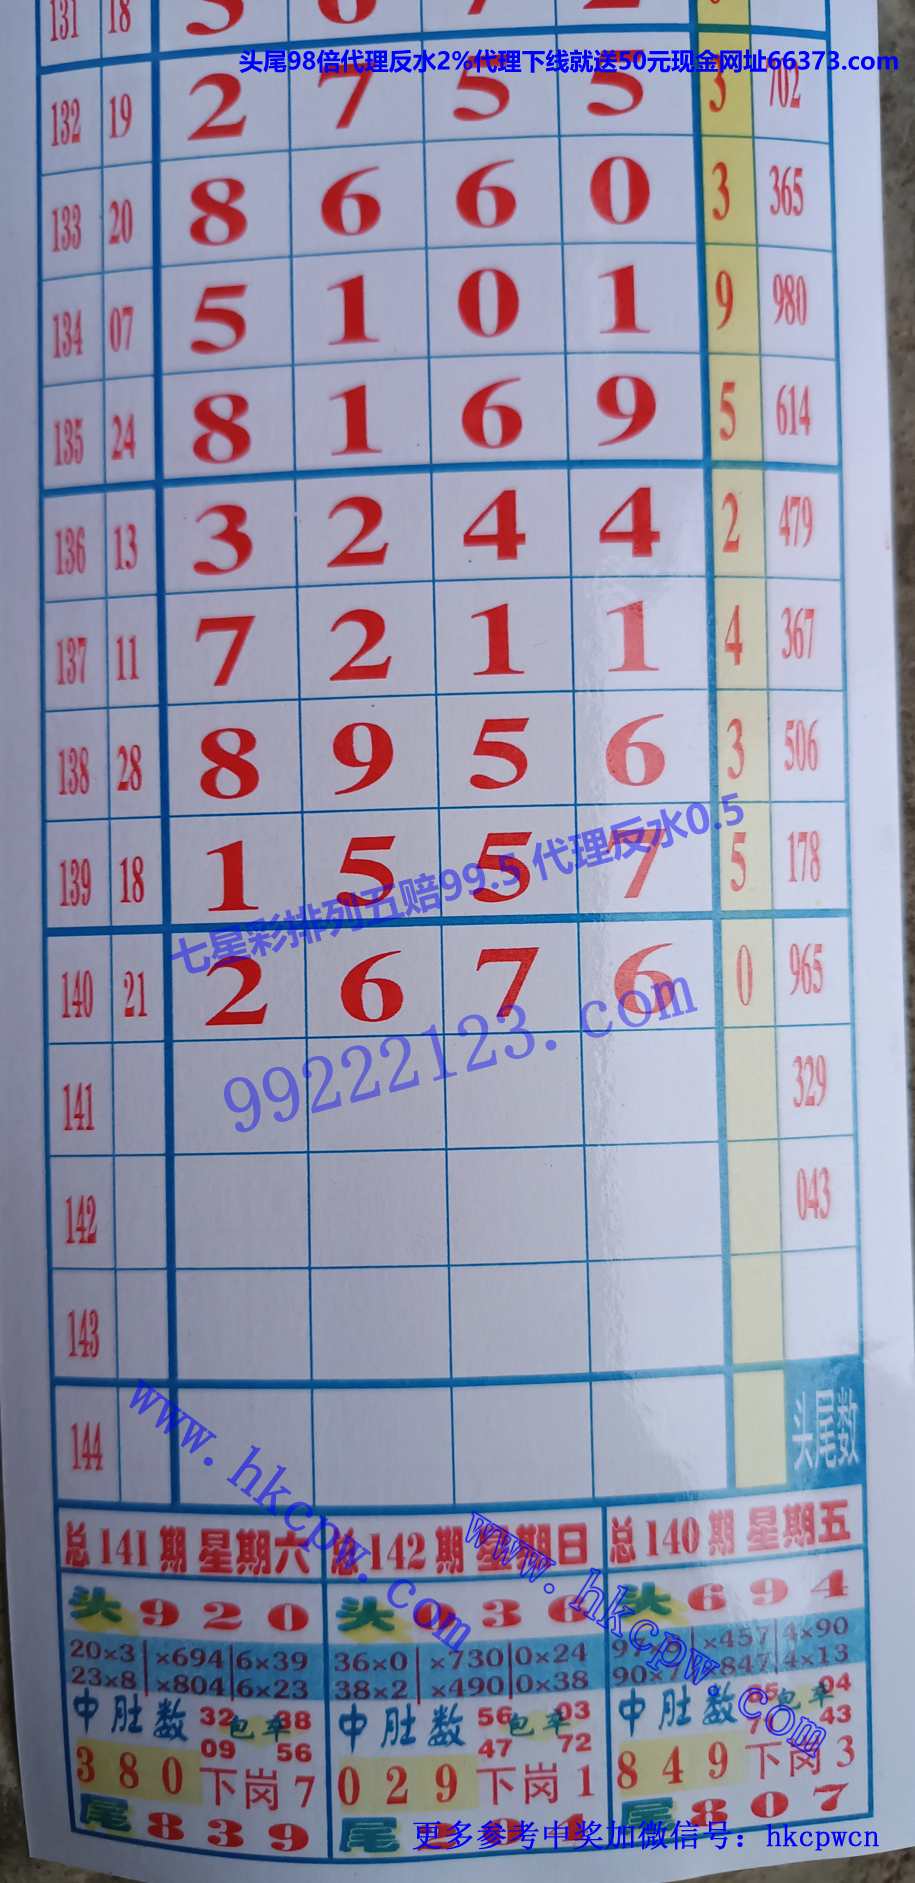 131 18
头尾98倍代理反水2%代理下线就送50元现金网址66373.com
132 19 2 7 5 5 3 702
133 20 8 6 6 0 3 365
134 07 5 1 0 1 9 980
135 24 8 1 6 9 5 614
136 13 3 2 4 4 2 479
137 11 7 2 1 1 4 367
138 28 8 9 5 6 3 506
139 18 1 5 5 7 5 178
七星彩排列五赔99.5 代理反水0.5
140 21 2 6 7 6 0 965
99222123.com
141 329
142 043
143
144 头尾数
www.hkcpw.com
www.hkcpw.com
总141期 星期六
头 9 2 0
20×3 ×694 6×39
23×8 ×804 6×23
中肚数 32 包牵 38
09 56
3 8 0 下岗 7
尾 8 3 9
总142期 星期日
头 0 3 6
36×0 ×730 0×24
38×2 ×490 0×38
中肚数 56 包牵 03
47 72
0 2 9 下岗 1
尾
总140期 星期五
头 6 9 4
×457 4×90
×847 4×13
中肚数 包牵 04
43
8 4 9 下岗 3
尾 8 0 7
更多参考中奖加微信号：hkcpwcn